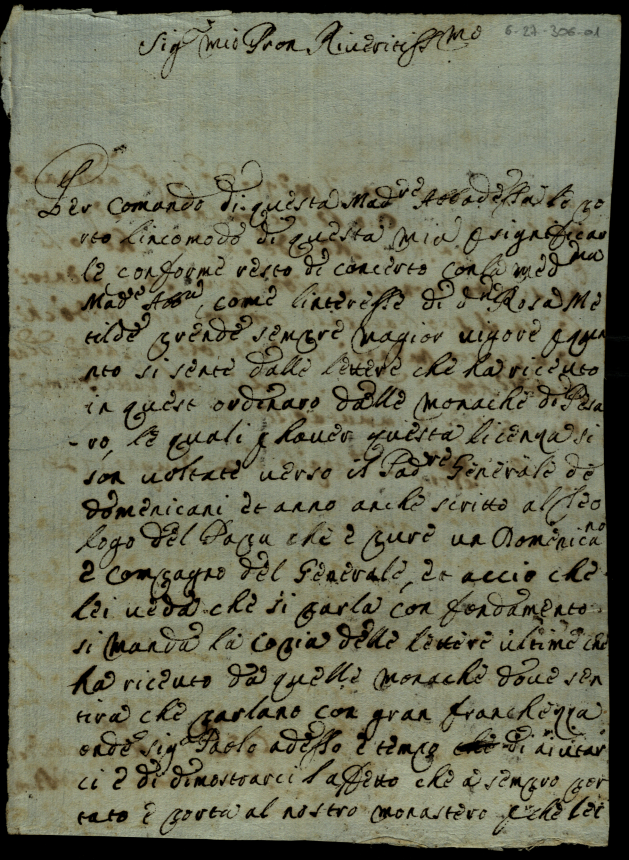 6-27-306-01
Sig.r mio Pron Riveritiss.mo
Per comando di questa Mad.re Abbadessa le po
rto lincomodo di questa mia p significar
le conforme resto di concerto con la med.ma
Mad.e Abb.a, come linteresse di D. Rosa Me
tilde prende sempre magior vigore p quan
nto si sente dalle lettere che ha riceuto
in quest ordinaro dalle monache di Pesa
-ro, le quali p hauer questa licenza si
son uoltate uerso il Pad.re Generale de
domenicani et anno anche scritto al Teo
logo del Papa che è pure un Domenica.no
e compagno del Generale, et accio che
lei ueda che si parla con fondamento
si manda la copia delle lettere ultime che
ha riceuto da quelle monache doue sen
tira che parlano con gran franchezza
onde sig.r Paolo adesso è tempo di aiutar
ci e di dimostrarci laffetto che a sempro por
tato e porta al nostro monastero p che lei